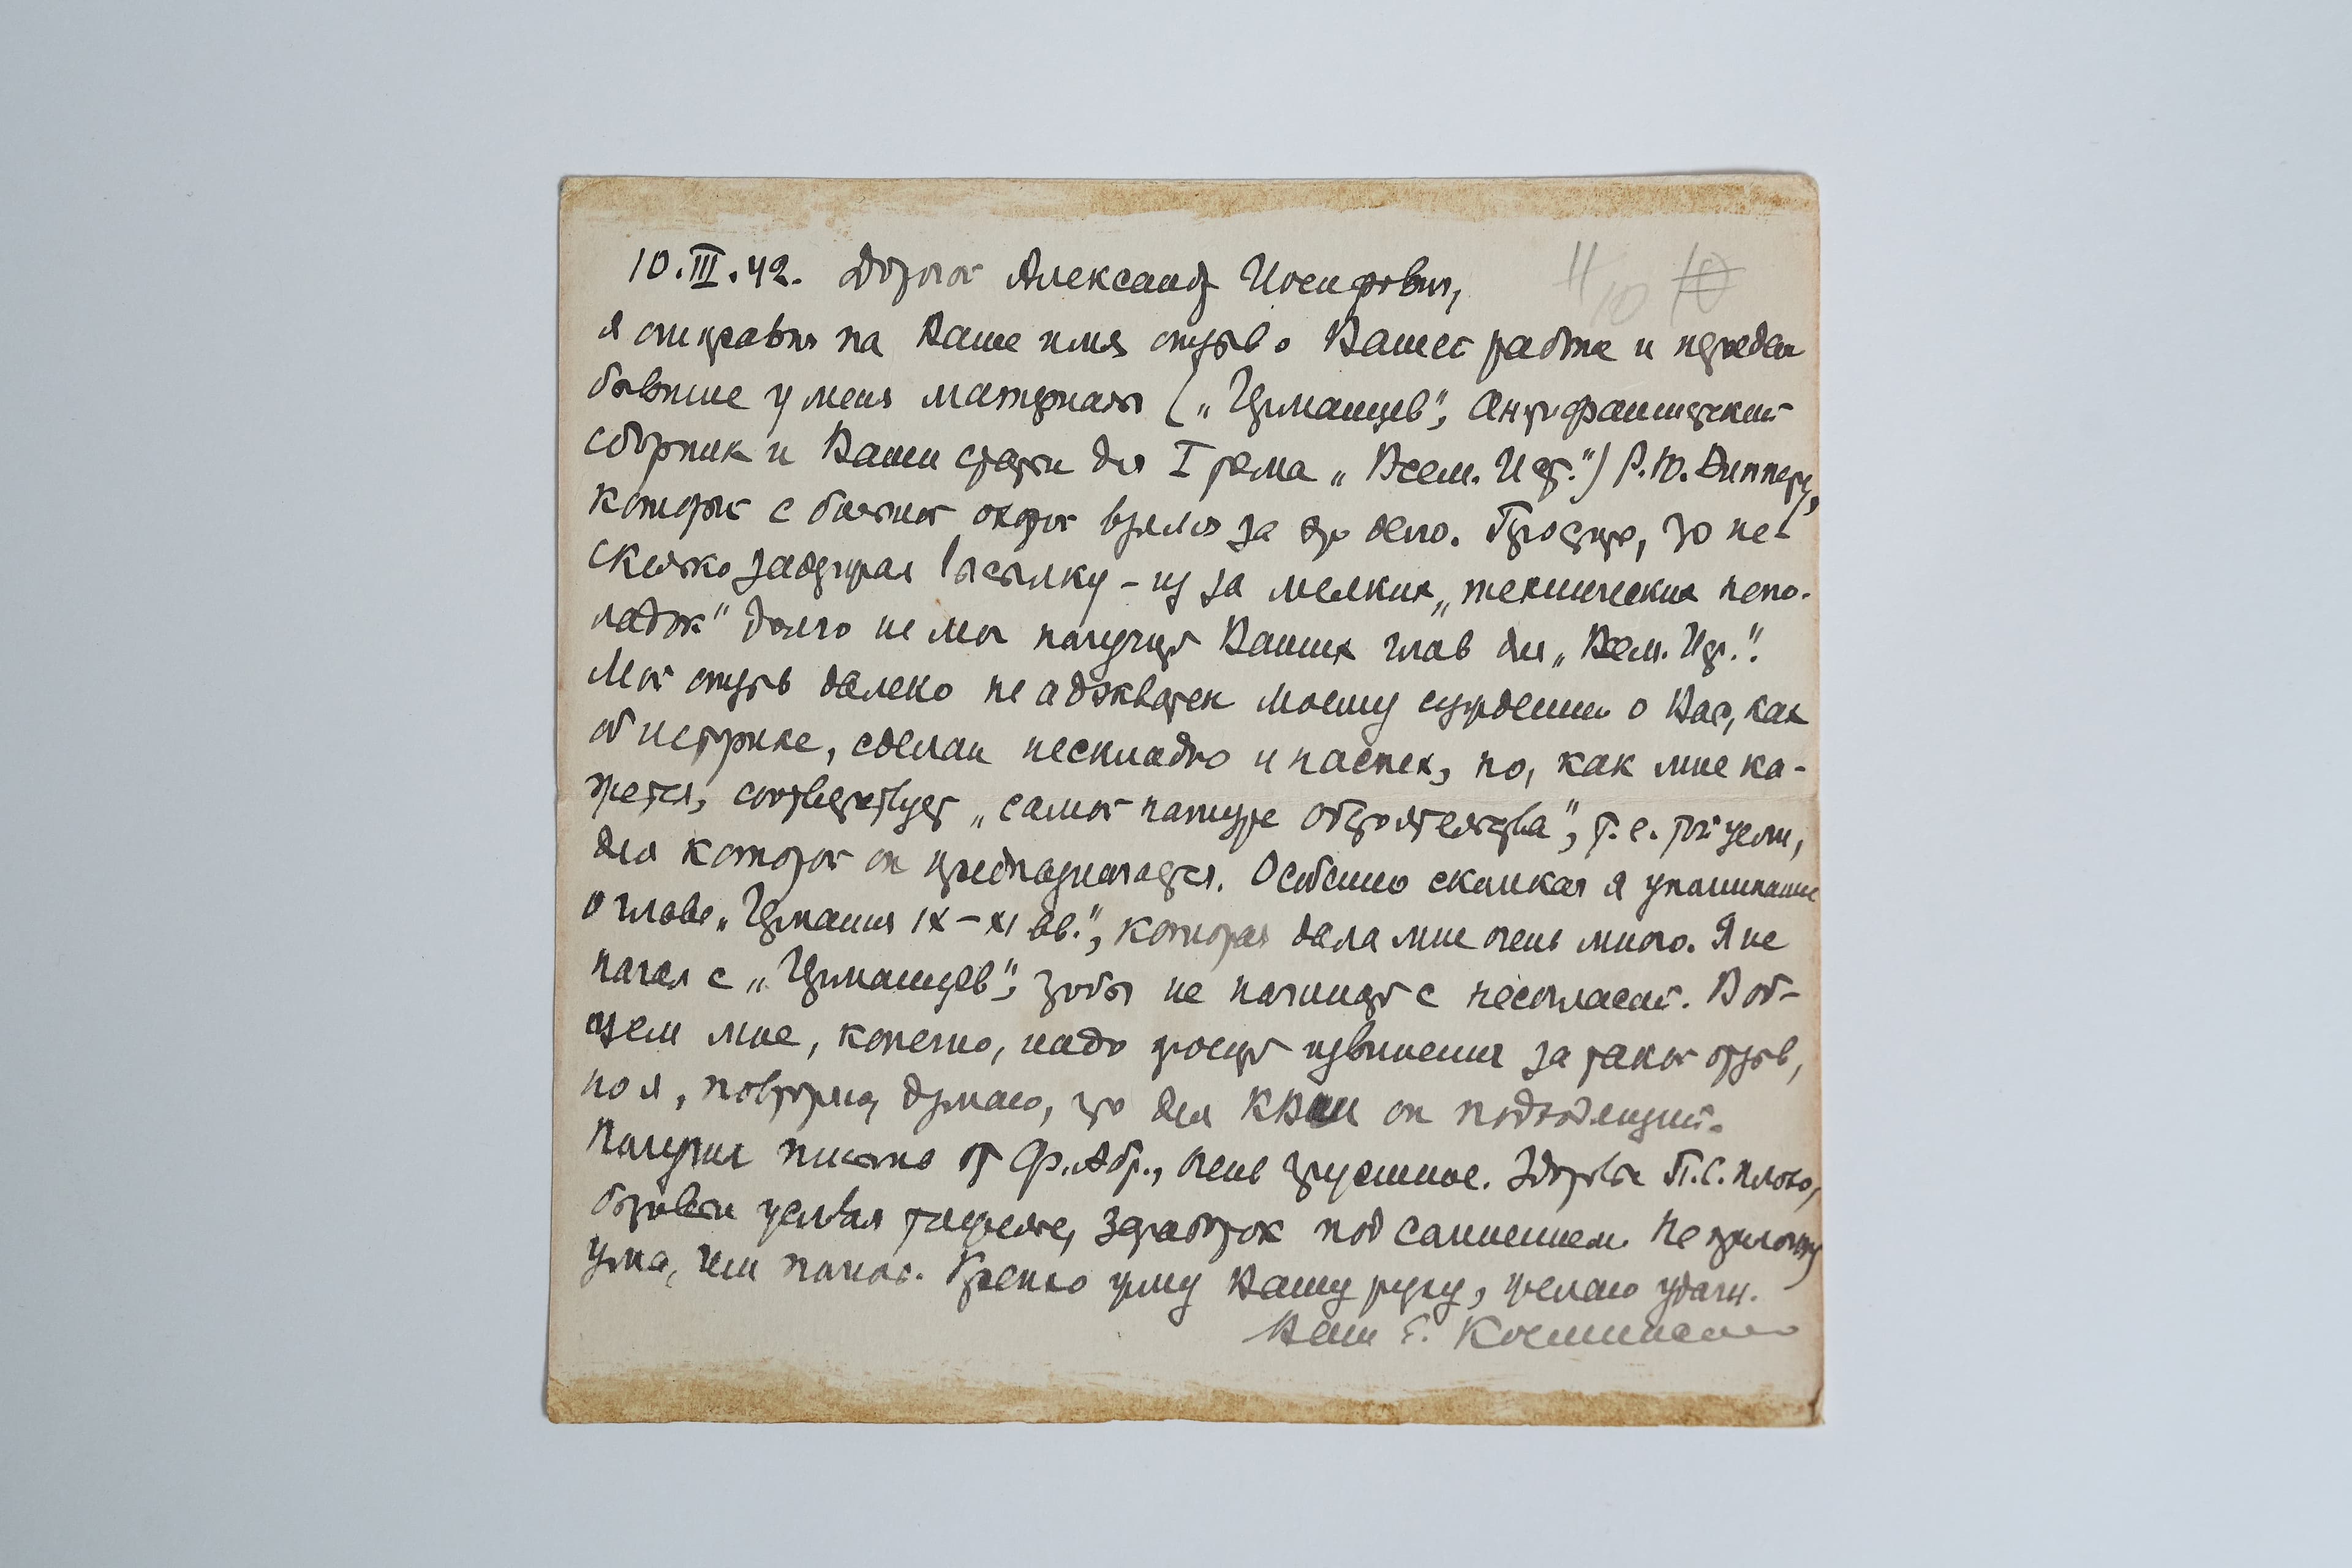 10.III.42. Дорогой Александр Иосифович,
11/10 10
я отправил на Ваше имя отзыв о Вашей работе и передал
бывшие у меня материалы („Германцев“, Антифашистский
сборник и Ваши статьи для I тома „Всем. Ист.“) Р.Ю. Випперу,
который с большой охотой взялся за это дело. Простите, что не-
сколько задержал посылку – из за мелких „технических непо-
ладок“ долго не мог получить Ваших глав для „Всем. Ист.“.
Мой отзыв далеко не адэкватен моему суждению о Вас, как
об историке, сделан нескладно и наспех, но, как мне ка-
жется, соответствует „самой натуре обстоятельства“, т.е. той цели,
для которой он предназначается. Особенно скомкал я упоминание
о главе „Германия IX–XI вв.“, которая дала мне очень много. Я не
начал с „Германцев“, чтобы не начинать с несогласий. В об-
щем мне, конечно, надо просить извинения за такой отзыв,
но я, повторяю, думаю, что для он подходящий.
Получил письмо от Ф. Абр., очень грустное. Здоровье П.С. плохо,
бытовые условия тяжелые, заработок под сомнением. Не приложу
ума, чем помочь. Крепко жму Вашу руку, желаю удачи.
Ваш Е. Косминский